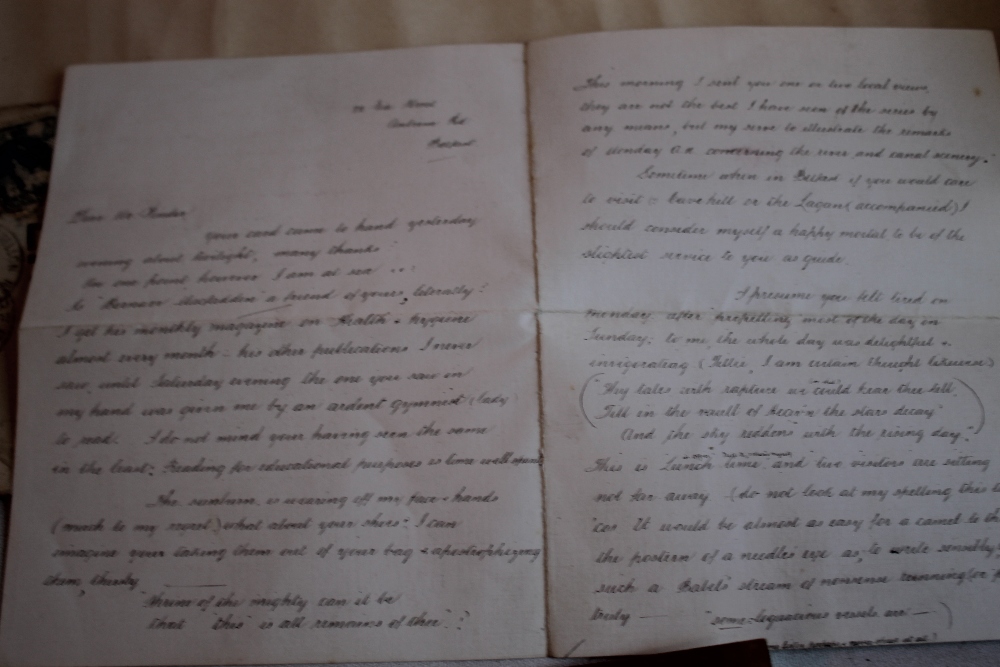 Antrim Rd
Belfast
Dear Mr
your card came to hand yesterday
evening about twilight, many thanks
On one point however I am at sea ..:
Is "Bernarr Macfadden" a friend of yours, literally?
I get his monthly magazine on Health & hygiene
almost every month: his other publications I never
saw until Saturday evening the one you saw in
my hand was given me by an ardent gymnist (lady)
to read. I do not mind your having seen the same
in the least: Reading for educational purposes is time well spent
The sunburn is wearing off my face & hands
(much to my regret) what about your shoes? I can
imagine your taking them out of your bag & apostrophizing
them, thereby
Shrine of the mighty can it be
that "this" is all remains of thee.?
This morning I sent you one or two local views,
they are not the best I have seen of the series by
any means, but may serve to illustrate the remarks
of Sunday concerning the river and canal scenery.
Sometime when in Belfast if you would care
to visit Cave hill or the Lagan (accompanied) I
should consider myself a happy mortal to be of the
slightest service to you as guide.
I presume you felt tired on
Monday after propelling most of the day on
Sunday; to me, the whole day was delightful &
invigorating (Tillie, I am certain thought likewise)
"Thy tales with rapture we could hear thee tell
Till in the vault of heav'n the stars decay
And the sky reddens with the rising day."
This is lunch time and two visitors are sitting
not far away (do not look at my spelling this
cos It would be almost as easy for a camel to
the postern of a needles eye as, to write sensibly
such a Babel stream of nonsense running
truly some loquacious vessels are